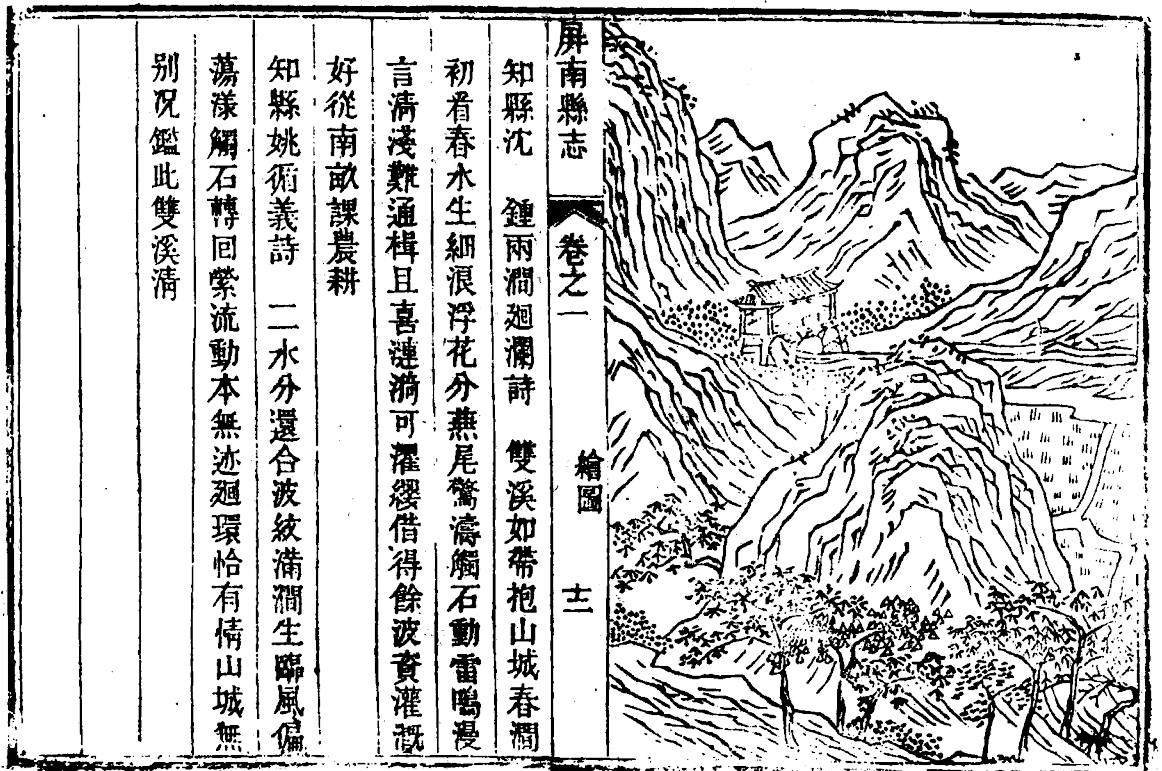 屏南縣志 卷之一 繪圖 十二
知縣沈 鍾兩澗廻瀾詩 雙溪如帶抱山城春澗
初看春水生細浪浮花分燕尾驚濤觸石動雷鳴漫
言清淺難通楫且喜漣漪可濯纓借得餘波資灌溉
好從南畝課農耕
知縣姚循義詩 二水分還合波紋滿澗生臨風偏
蕩漾觸石轉回縈流動本無迹廻環恰有情山城無
别况鑑此雙溪清